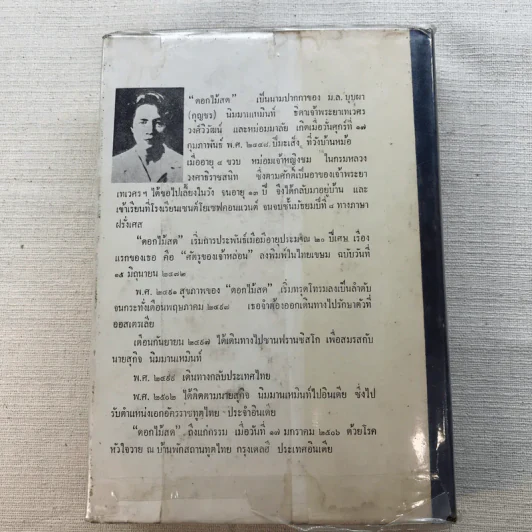 “ดอกไม้สด” เป็นนามปากกาของ ม.ล. บุบผา
(กุญชร) นิมมานเหมินท์ ธิดาเจ้าพระยาเทเวศร
วงศ์วิวัฒน์ และหม่อมมาลัย เกิดเมื่อวันศุกร์ที่ ๑๗
กุมภาพันธ์ พ.ศ. ๒๔๔๘ ปีมะเส็ง ที่วังบ้านหม้อ
เมื่ออายุ ๔ ขวบ หม่อมเจ้าหญิงชม ในกรมหลวง
วงศาธิราชสนิท ซึ่งตามศักดิ์เป็นอาของเจ้าพระยา
เทเวศรฯ ได้ขอไปเลี้ยงในวัง จนอายุ ๑๓ ปี จึงได้กลับมาอยู่บ้าน และ
เข้าเรียนที่โรงเรียนเซนต์โยเซฟคอนแวนต์ จนจบชั้นมัธยมปีที่ ๘ ทางภาษา
ฝรั่งเศส
“ดอกไม้สด” เริ่มการประพันธ์เมื่อมีอายุประมาณ ๒๐ ปีเศษ เรื่อง
แรกของเธอ คือ “ศัตรูของเจ้าหล่อน” ลงพิมพ์ในไทยเขษม ฉบับวันที่
๑๕ มิถุนายน ๒๔๗๒
พ.ศ. ๒๔๙๑ สุขภาพของ “ดอกไม้สด” เริ่มทรุดโทรมลงเป็นลำดับ
จนกระทั่งเดือนพฤษภาคม ๒๔๙๗ เธอจำต้องออกเดินทางไปรักษาตัวที่
ออสเตรเลีย
เดือนกันยายน ๒๔๙๗ ได้เดินทางไปซานฟรานซิสโก เพื่อสมรสกับ
นายสุกิจ นิมมานเหมินท์
พ.ศ. ๒๔๙๘ เดินทางกลับประเทศไทย
พ.ศ. ๒๕๐๒ ได้ติดตามนายสุกิจ นิมมานเหมินท์ไปอินเดีย ซึ่งไป
รับตำแหน่งเอกอัครราชทูตไทย ประจำอินเดีย
“ดอกไม้สด” ถึงแก่กรรม เมื่อวันที่ ๑๗ มกราคม ๒๕๐๖ ด้วยโรค
หัวใจวาย ณ บ้านพักสถานทูตไทย กรุงเดลฮี ประเทศอินเดีย